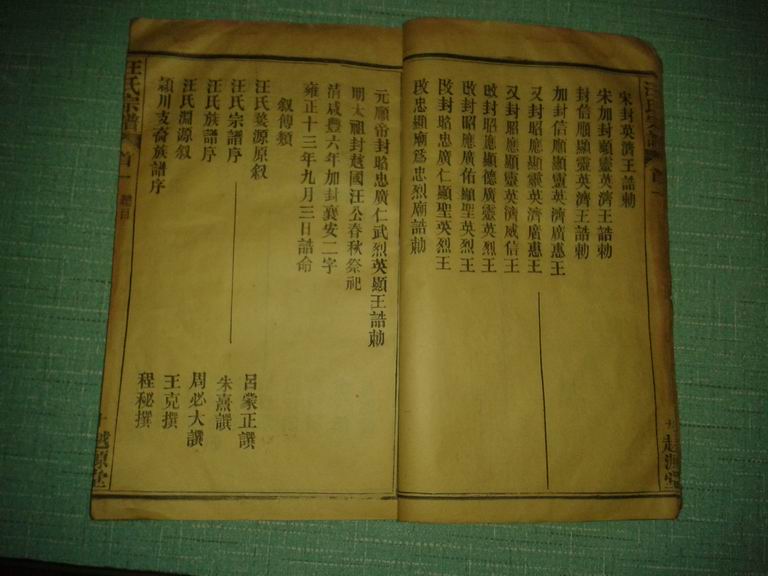 宋封英濟王誥勅
宋加封顯靈英濟王誥勅
封信順顯靈英濟王誥勅
加封信順顯靈英濟廣惠王
又封昭應顯靈英濟廣惠王
又封昭應顯靈英濟威信王
改封昭應顯德廣靈英烈王
改封昭應廣佑顯聖英烈王
改封昭忠廣仁顯聖英烈王
改忠顯廟爲忠烈廟誥勅
元順帝封昭忠廣仁武烈英顯王誥勅
明太祖封越國汪公春秋祭祀
清咸豐六年加封襄安二字
雍正十三年九月三日誥命
叙傳類
汪氏婺源原叙 呂蒙正譔
汪氏宗譜序 朱熹譔
汪氏族譜序 周必大譔
汪氏淵源叙 王克撰
潁川支裔族譜序 程秘撰
汪氏宗譜 首一 總目 越源堂